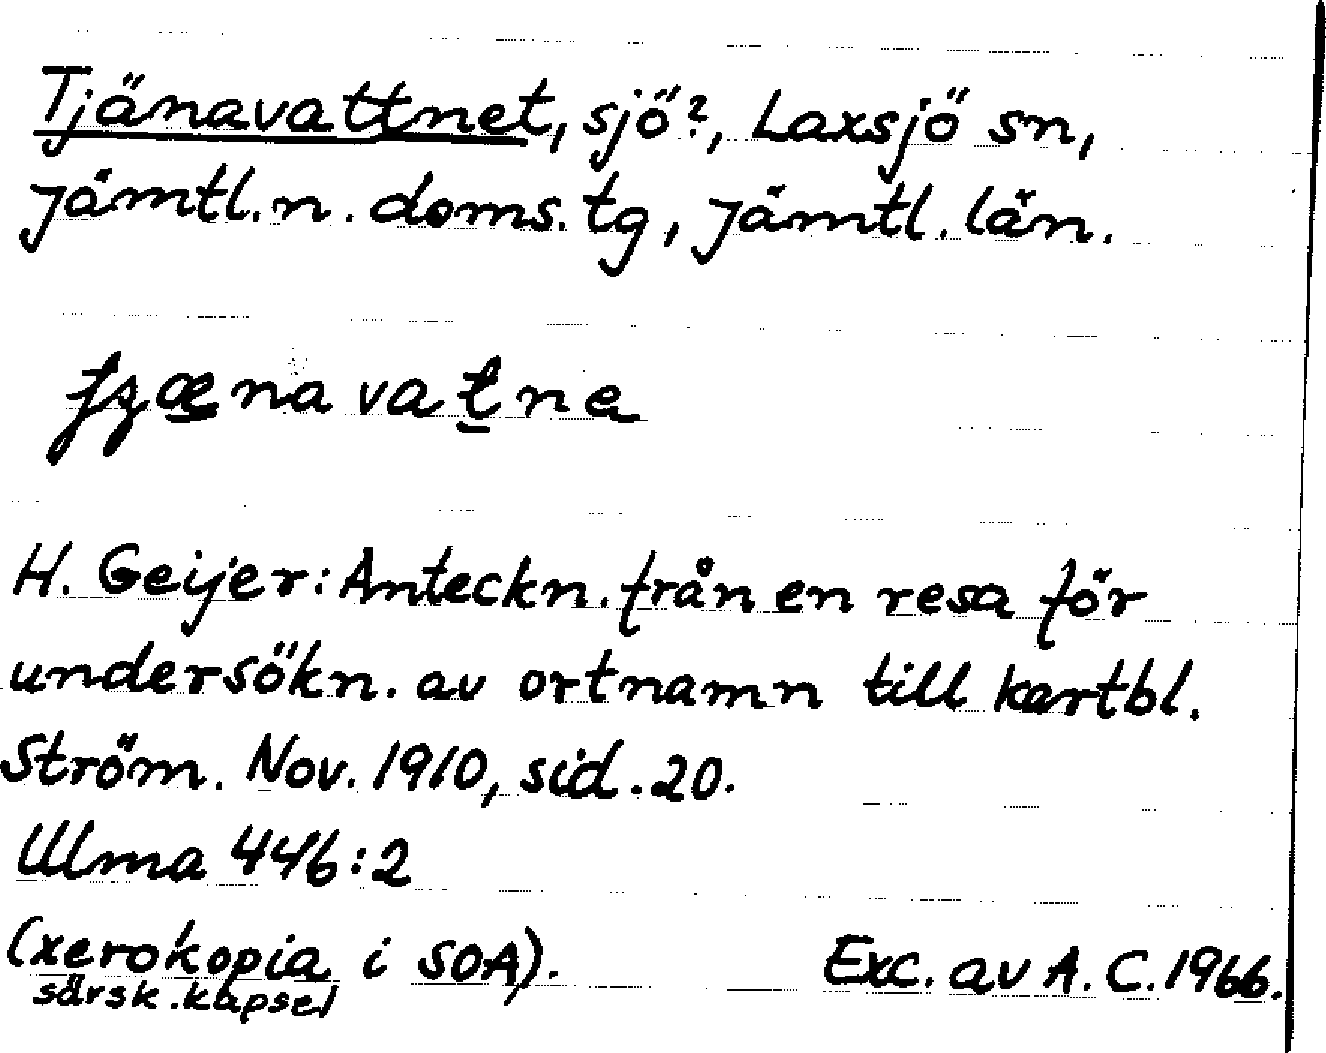 Tjänavattnet, sjö?, Laxsjö sn,
Jämtl. n. doms. tg, Jämtl. län.
H. Geijer: Anteckn. från en resa för
undersökn. av ortnamn till kartbl.
Ström. Nov. 1910, sid. 20.
Ulma 446:2
(xerokopia i SOA). Exc. av A. C. 1966.
särsk. kapsel